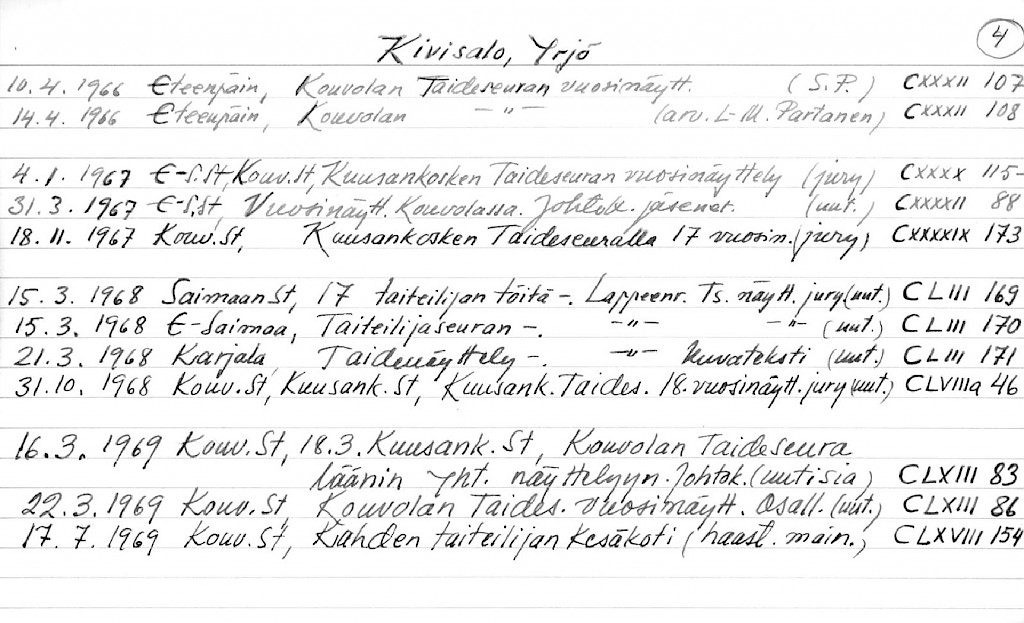 4
Kivisalo, Yrjö
10.4.1966 Eteenpäin, Kouvolan Taideseuran vuosinäytt. (S.P.) CXXXII 107
14.4.1966 Eteenpäin, Kouvolan -"- (arv. L-M. Partanen) CXXXII 108
4.1.1967 E-S.St, Kouv.St, Kuusankosken Taideseuran vuosinäyttely (jury) CXXXX 115-
31.3.1967 E-S.St, Vuosinäytt. Kouvolassa. Johtok. jäsenet. (uut.) CXXXXII 88
18.11.1967 Kouv.St, Kuusankosken Taideseuralla 17 vuosin. (jury) CXXXXIX 173
15.3.1968 Saimaan St, 17 taiteilijan töitä -. Lappeenr. Ts. näytt. jury (uut.) CLIII 169
15.3.1968 E-Saimaa, Taiteilijaseuran -. -"- -"- (uut.) CLIII 170
21.3.1968 Karjala, Taidenäyttely -. -"- Kuvateksti (uut.) CLIII 171
31.10.1968 Kouv.St, Kuusank.St, Kuusank.Taides. 18.vuosinäytt. jury (uut.) CLVIIIa 46
16.3.1969 Kouv.St, 18.3. Kuusank.St, Kouvolan Taideseura
läänin yht. näyttelyyn. Johtok. (uutisia) CLXIII 83
22.3.1969 Kouv.St, Kouvolan Taides. vuosinäytt. osall. (uut.) CLXIII 86
17.7.1969 Kouv.St, Kahden taiteilijan kesäkoti (haast. main.) CLXVIII 154